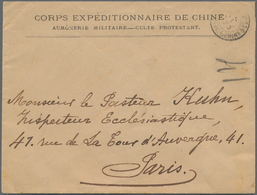 CORPS EXPÉDITIONNAIRE DE CHINE
AUMÔNERIE MILITAIRE—CULTE PROTESTANT.
Monsieur le Pasteur Kuhn,
Inspecteur Ecclésiastique,
47. rue de La Tour d'Auvergne, 41.
Paris.